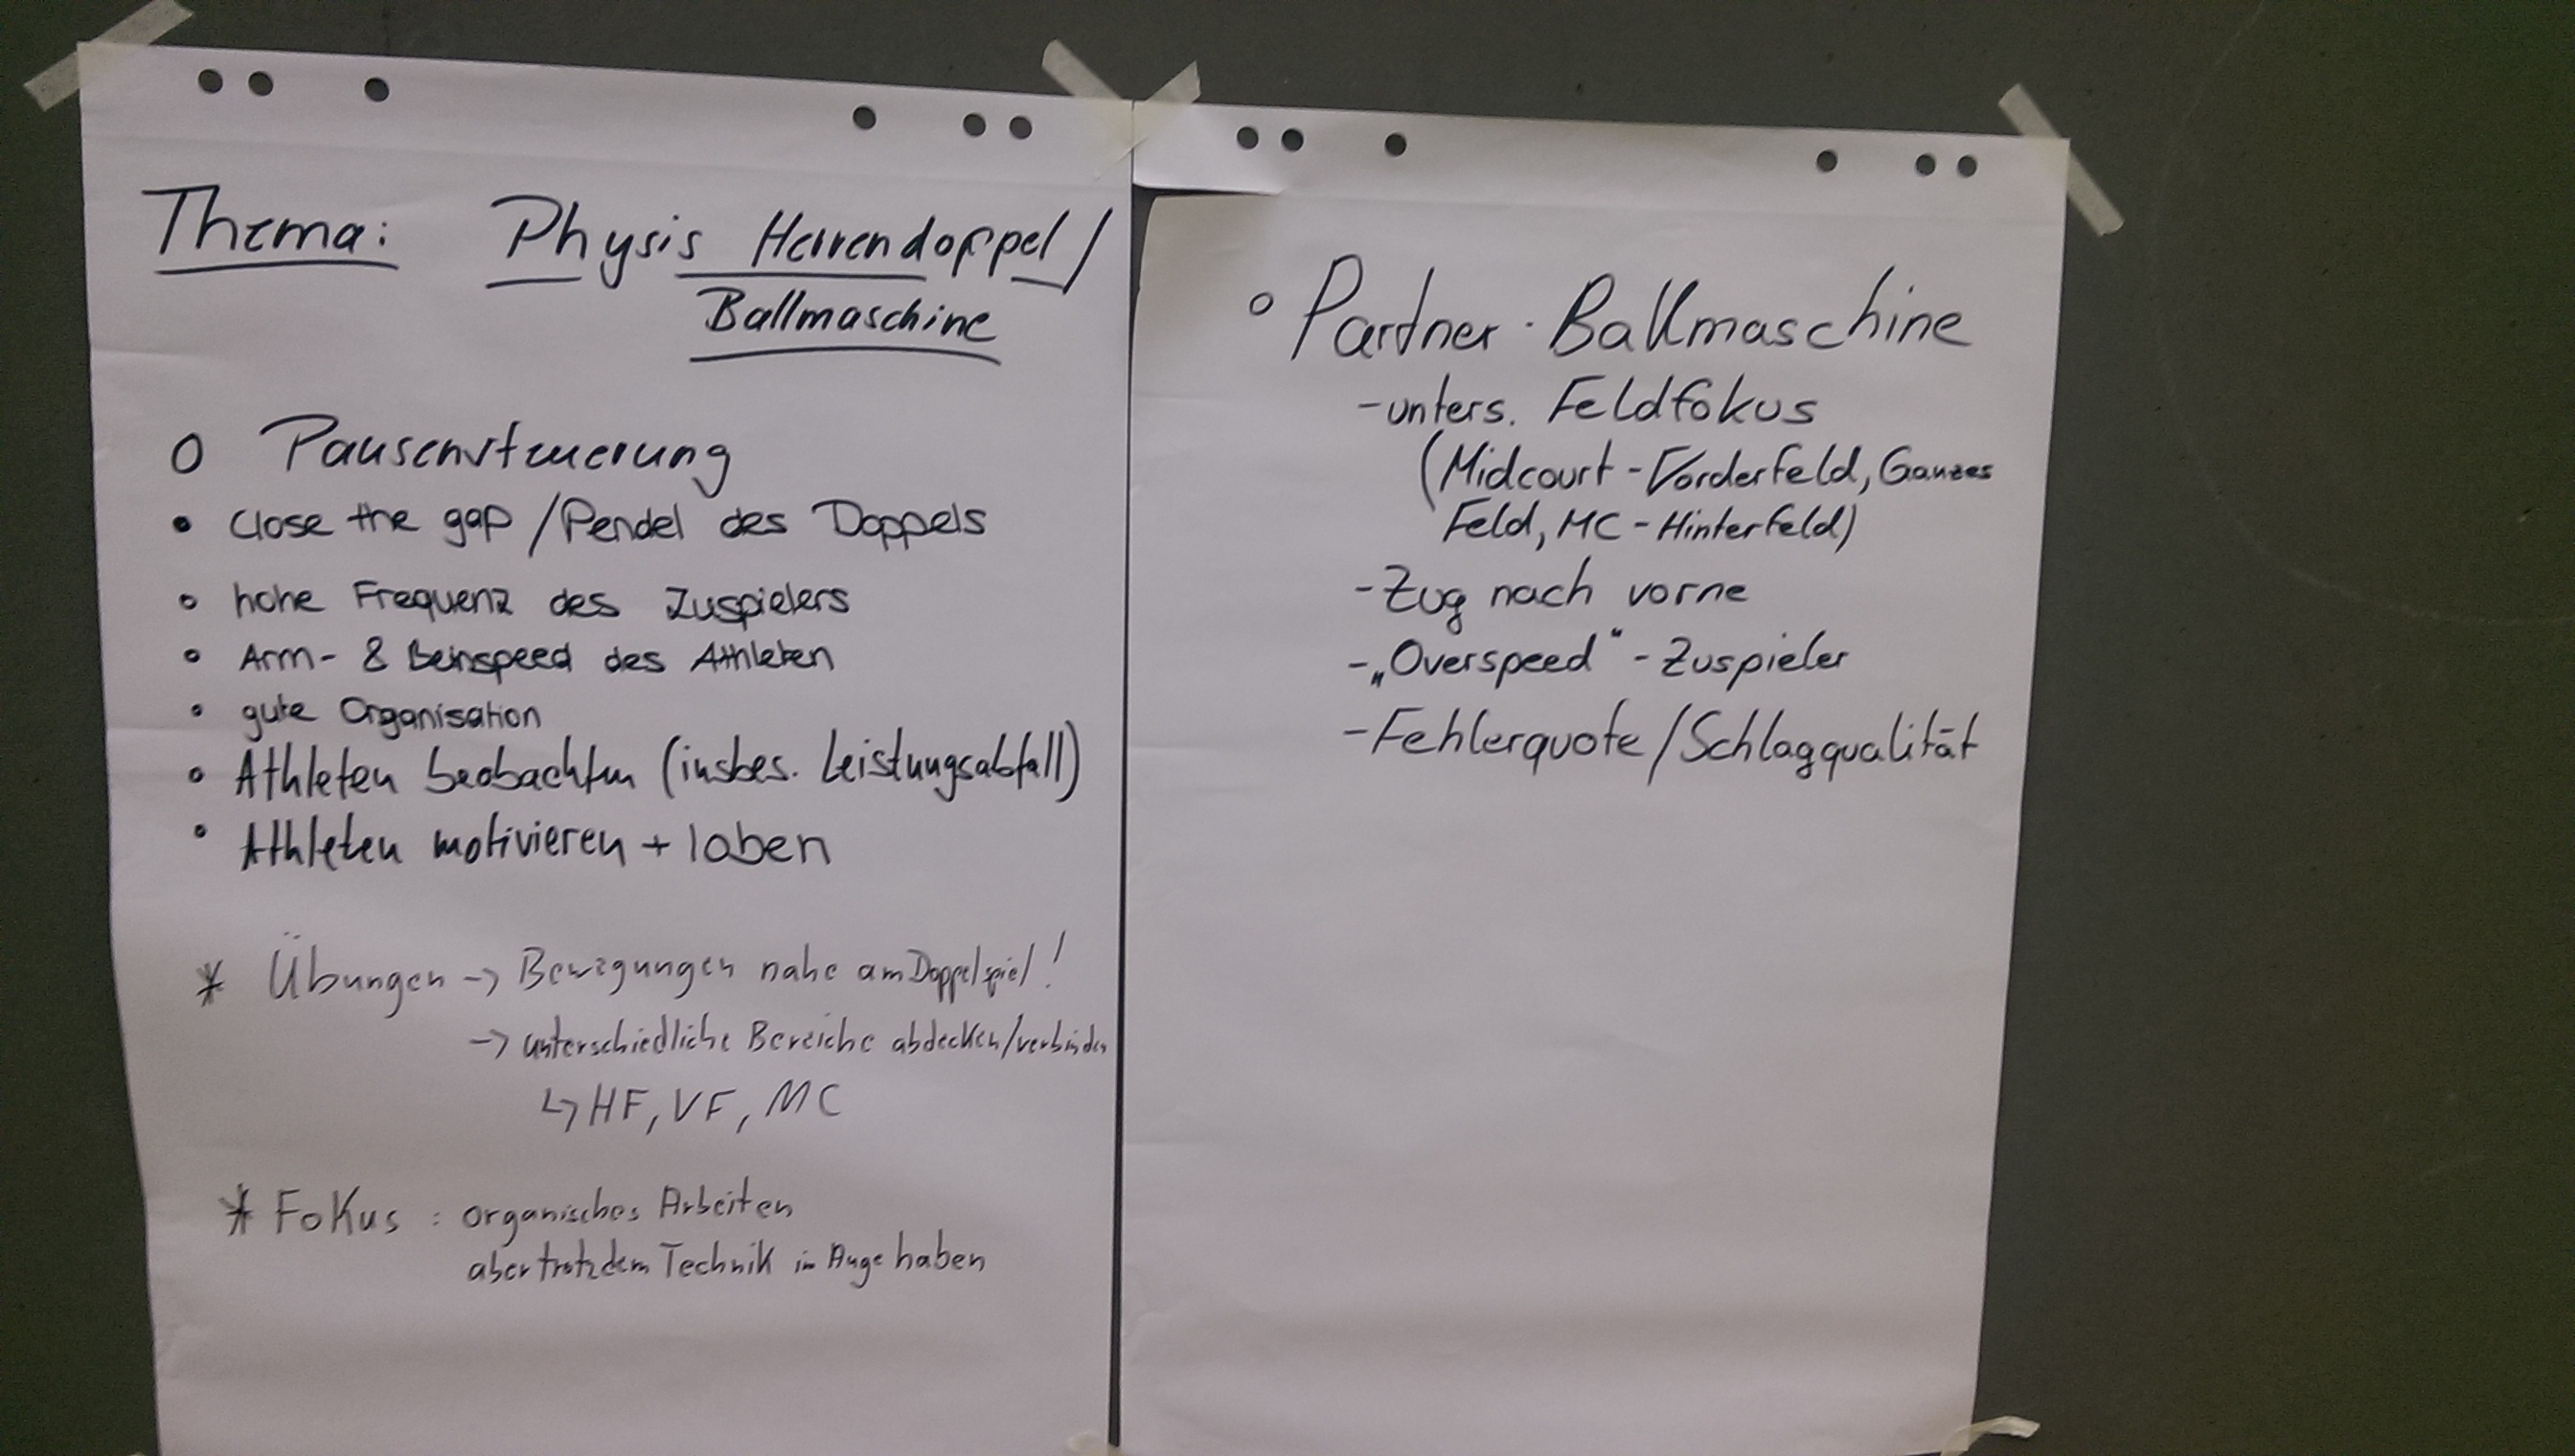 Thema: Physis Herrendoppel/
Ballmaschine
o Pausensteuerung
• Close the gap / Pendel des Doppels
• hohe Frequenz des Zuspielers
• Arm- & Beinspeed des Athleten
• gute Organisation
• Athleten beobachten (insbes. Leistungsabfall)
• Athleten motivieren + loben
* Übungen -> Bewegungen nahe am Doppelspiel!
-> unterschiedliche Bereiche abdecken/verbinden
↳ HF, VF, MC
* Fokus: organisches Arbeiten
aber trotzdem Technik im Auge haben
o Partner-Ballmaschine
- unters. Feldfokus
(Midcourt-Vorderfeld, Ganzes
Feld, MC-Hinterfeld)
- Zug nach vorne
- „Overspeed“-Zuspieler
- Fehlerquote/Schlagqualität